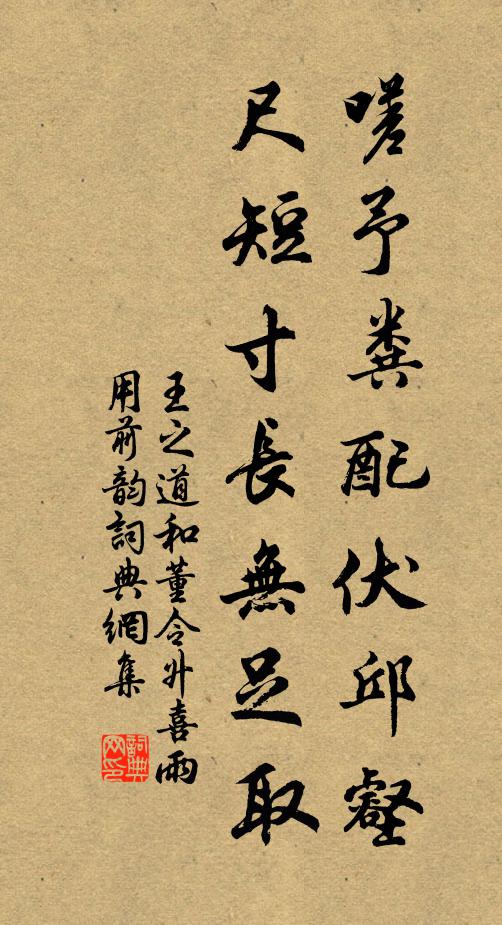 嗟予粪配伏邱壑
尺短寸長無足取
王之道和董令升喜雨
用前韵詞典網集
詞典網印